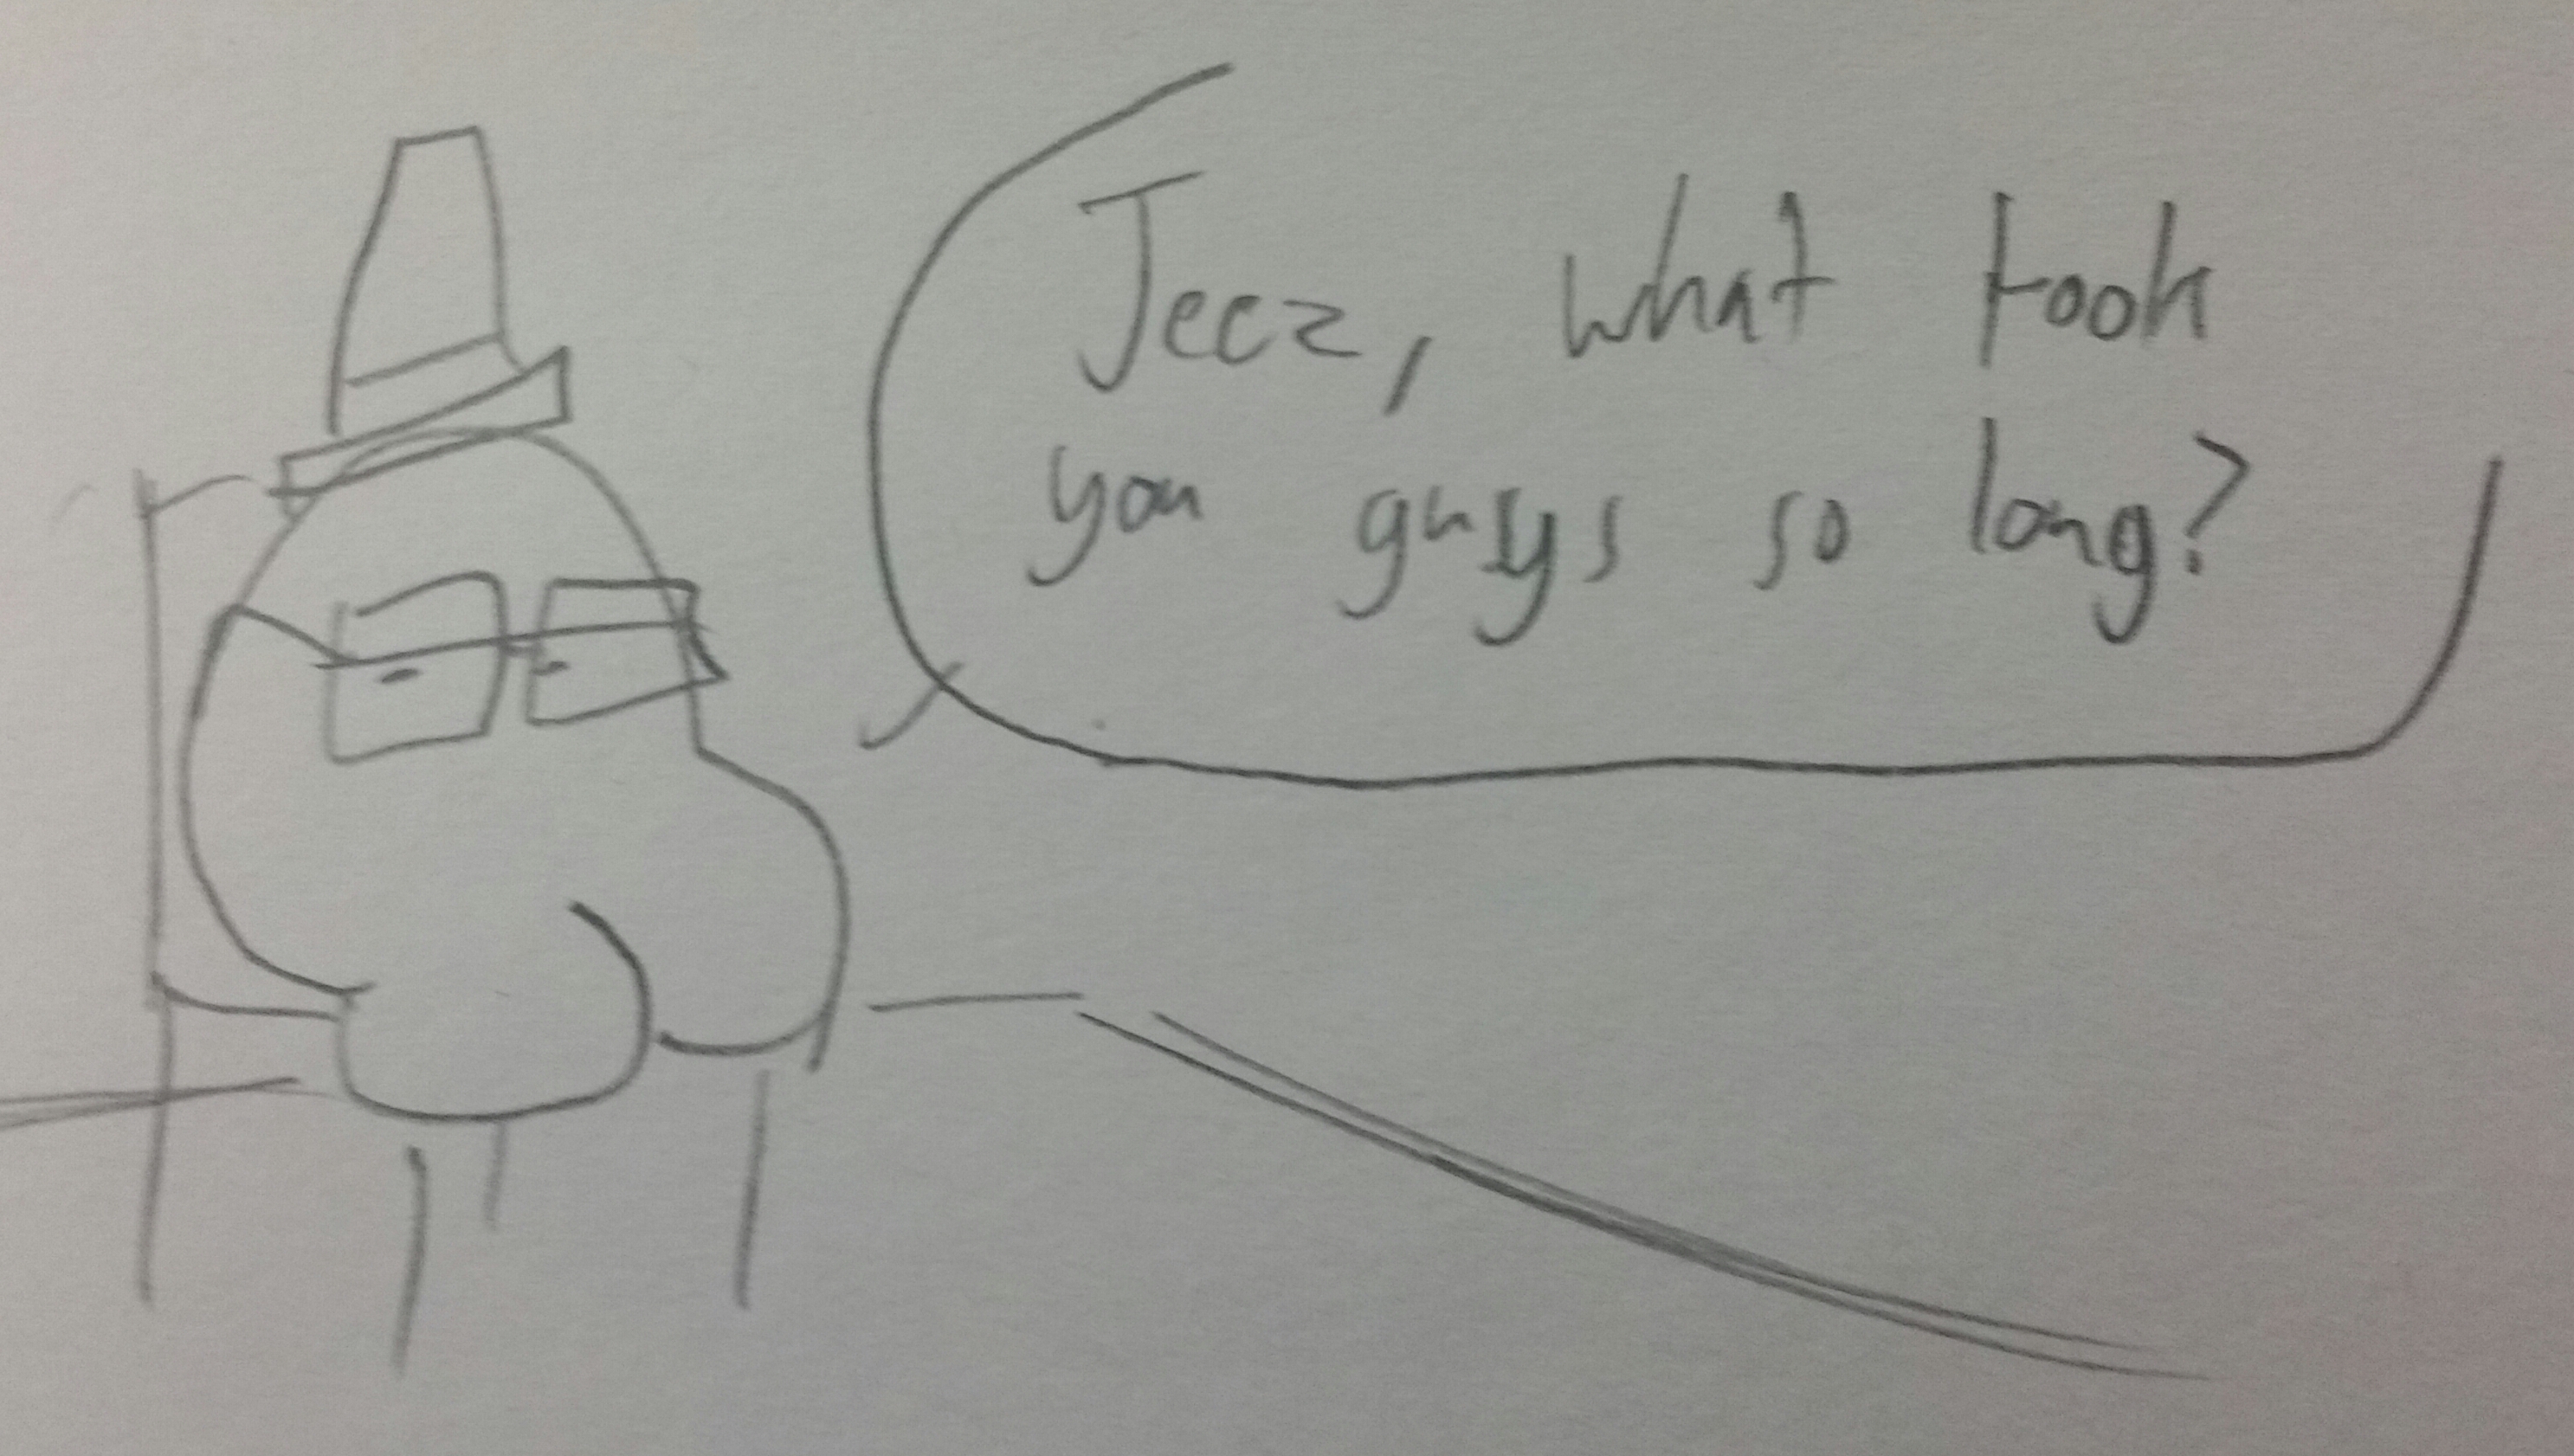 Jeez, what took
you guys so long?